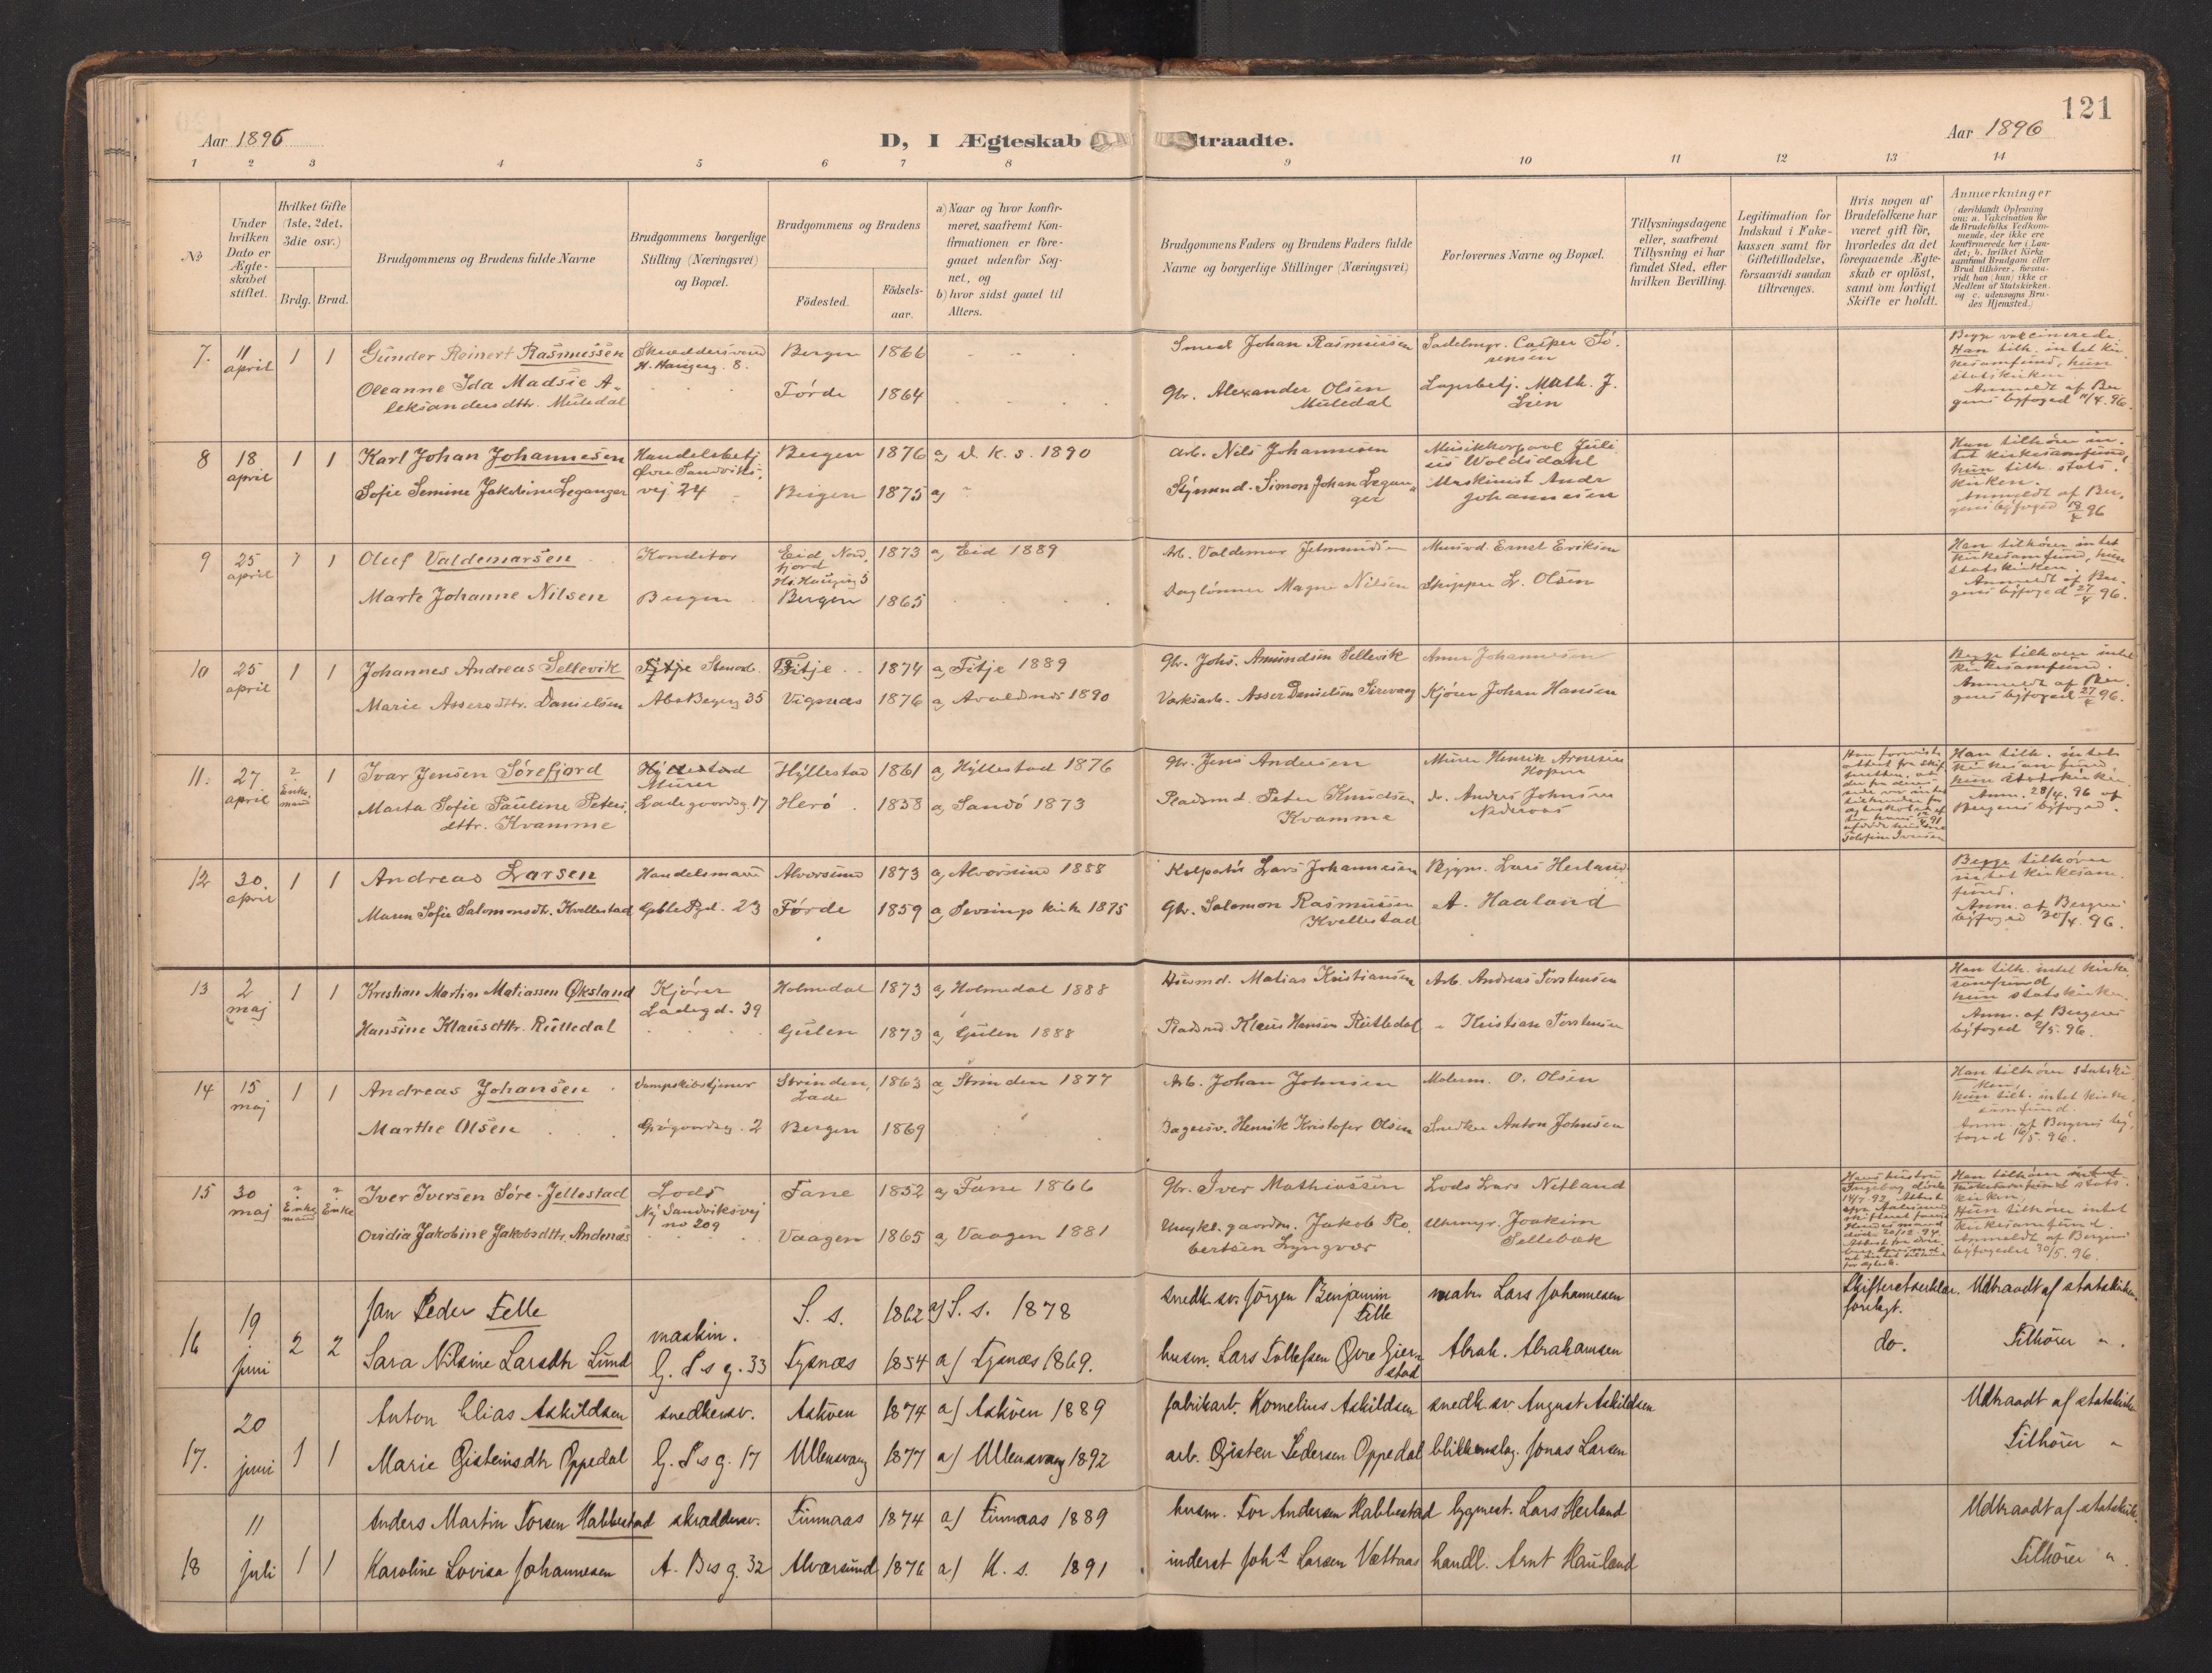 121
Aar 1896
D, I Ægteskab
traadte.
Aar 1896
1 2 3 4 5 6 7 8 9 10 11 12 13 14
No
Under hvilken Dato er Ægteskabet stiftet.
Hvilket Gifte (1ste, 2det, 3die osv.)
Brdg. Brud.
Brudgommens og Brudens fulde Navne
Brudgommens borgerlige Stilling (Næringsvei) og Bopæl.
Brudgommens og Brudens
Födested.
Födselsaar.
a) Naar og hvor konfirmeret, saafremt Konfirmationen er foregaaet udenfor Sognet, og
b) hvor sidst gaaet til Alters.
Brudgommens Faders og Brudens Faders fulde Navne og borgerlige Stillinger (Næringsvei)
Forlovernes Navne og Bopæl.
Tillysningsdagene eller, saafremt Tillysning ei har fundet Sted, efter hvilken Bevilling.
Legitimation for Indskud i Enkekassen samt for Giftetilladelse, forsaavidt saadan tiltrænges.
Hvis nogen af Brudefolkene har været gift för, hvorledes da det foregaaende Ægteskab er oplöst, samt om lovligt Skifte er holdt.
Anmærkninger
(deriblandt Oplysning om: a. Vakcination för de Brudefolks Vedkommende, der ikke ere konfirmerede her i Landet; b. hvilket Kirkesamfund Brudgom eller Brud tilhörer, forsaavidt han (hun) ikke er Medlem af Statskirken. og c. udensogns Brudes Hjemsted.)
7. 11 april 1 1 Gunder Reinert Rasmussen
Skræddersvend H. Haugeg. 8.
Bergen 1866
Smed Johan Rasmussen
Sadelmgr. Casper Sörensen
Begge vakcinerede
Han tilh. intet kirkesamfund, hun statskirken
Anmeldt af Bergens byfoged 11/4.96.
Oleanne Ida Madsie Aleksandersdttr. Muledal
Förde 1864
Gbr. Alexander Olsen Muledal
Lagerbetj. Math. J. Lien
8 18 april 1 1 Karl Johan Johannesen
Handelsbetj Övre Sandviksvej 24
Bergen 1876 a) d. k. s. 1890
Arb. Nils Johannesen
Musikkorporal Julius Woldsdahl
Han tilhörer intet kirkesamfund, hun tilh. statskirken.
Anmeldt af Bergens byfoged 18/4 96
Sofie Semine Jakobine Leganger
Bergen 1875 a)
Styrmand. Simon Johan Leganger
Maskinist Andr Johannesen
9 25 april 1 1 Oluf Valdemarsen
Konditor
Eid, Nordfjord 1873 a) Eid 1889
Arb. Valdemar
Ernst Eriksen
Han tilhörer intet kirkesamfund, hun statskirken.
Anmeldt af Bergens byfoged 27/4 96.
Marte Johanne Nilsen
Bergen
Bergen 1865
Daglönner Magne Nilsen
Skipper L. Olsen
10 25 april 1 1 Johannes Andreas Sellevik
Fitje
Fitje 1874 a) Fitje 1889
Gbr. Johs. Amundsen Sellevik
Johannesen
Begge tilhörer intet kirkesamfund.
Anmeldt af Bergens byfoged 27/4 96.
Marie Assersdttr. Danielsen
35
Vigsnæs 1876 a) Avaldsnes 1890
Værksarb. Asser Danielsen Sirevaag
Kjörer Johan Hansen
11. 27 april 2 Enkemand 1 Ivar Jensen Sörefjord
Hyllestad Murer
Hyllestad 1861 a) Hyllestad 1876
Gbr. Jens Andersen
Murer Henrik Arnesen Hopen
Han tilh. intet kirkesamfund, hun statskirken.
Anm. 28/4.96 af Bergens byfoged.
Marta Sofie Pauline Petersdttr. Kvamme
Ladegaardsg. 17
Herö 1858 a) Sandö 1873
Pladsmd. Peter Knudsen Kvamme
do. Anders Johnsen
12 30. april 1 1 Andreas Larsen
Handelsmand
Alversund 1873 a) Alversund 1888
Kolportör Lars Johannesen
Bygm. Lars Herland
Begge tilhörer intet kirkesamfund.
Anm. af Bergens byfoged 30/4.96.
Maren Sofie Salomonsdtr. Kvellestad
23
Förde 1859 a) 1875
Gbr. Salomon Rasmussen Kvellestad
A. Haaland
13 2 maj 1 1 Kristian Martin Matiassen Öksland
Kjörer Ladegd. 39
Holmedal 1873 a) Holmedal 1888
Husmd. Matias Kristiansen
Arb. Andreas Torstensen
Han tilh. intet kirkesamfund, hun statskirken.
Anm. af Bergens byfoged 2/5.96.
Hansine Klausdttr. Rutledal
Gulen 1873 a) Gulen 1888
Pladsmd Klaus Hansen Rutledal
" Kristian Torstensen
14 15 maj 1 1 Andreas Johansen
Dampskibstjener
Strinden, Lade 1863 a) Strinden 1877
Arb. Johan Johnsen
Malerm. O. Olsen
Han tilhörer statskirken, hun tilh. intet kirkesamfund.
Anm. af Bergens byfoged 16/5.96.
Marthe Olsen
2
Bergen 1869
Bagersv. Henrik Kristofer Olsen
Snedker Anton Johnsen
15 30 maj 2 Enkemand 2 Enke Iver Iversen Söre-Jellestad
Lods Ny Sandviksvej no 209
Fane 1852 a) Fane 1866
Gbr. Iver Mathiassen
Lods Lars Netland
Han tilhörer statskirken, Hun tilhörer intet kirkesamfund.
Anmeldt af Bergens byfoged 30/5.96.
Ovidia Jakobine Jakobsdttr. Andenæs
Vaagen 1865 a) Vaagen 1881
gaardm. Jakob Robertsen Lyngvær
Uhrmgr. Joakim Sellebak
16 19 juni 2 2 Jan Peder Felle
maskin. G. S s g. 33
S. s. 1862 a) S. s. 1878
snedk. sv. Jörgen Benjamin Felle
matr. Lars Johannesen
Skifteretserklær. forelagt.
Udtraadt af statskirken.
Sara Nilsine Larsdtr Lund
Tysnæs 1854 a) Tysnæs 1869.
husm. Lars Tollefsen Övre Gjerstad
Abrah. Abrahamsen
do.
Tilhörer "
17. 20 juni 1 1 Anton Elias Askildsen
snedkersv. G. S s g. 17
Askven 1874 a) Askven 1889
fabrikarb. Kornelius Askildsen
snedk. sv. August Askildsen
Udtraadt af statskirken
Marie Öisteinsdtr Oppedal
Ullensvang 1877 a) Ullensvang 1892
arb. Öisten Pedersen Oppedal
blikkenslag. Jonas Larsen
Tilhörer "
18 11 juli 1 1 Anders Martin Torsen Habbestad
skræddersv. A. B s g. 32
Finnaas 1874 a) Finnaas 1889
husm. Tor Andersen Habbestad
bygmest. Lars Herland
Udtraadt af statskirk.
Karoline Lovisa Johannesen
Alversund 1876 a) K. s. 1891
inderst Johs Larsen Vettaas
handl. Arnt Hauland
Tilhörer "